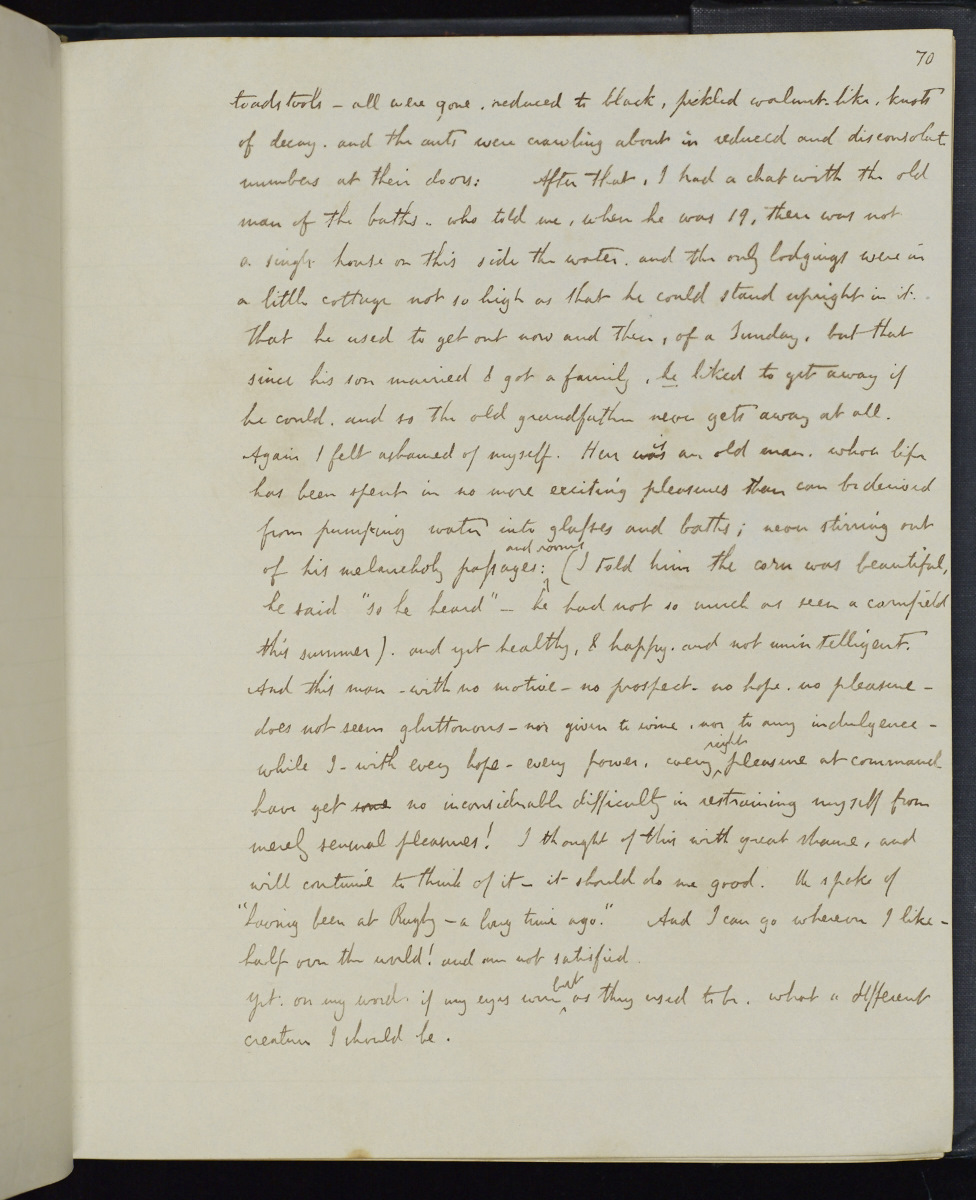 70
toadstools - all were gone, reduced to black, pickled walnut-like, knots
of decay. and the ants were crawling about in reduced and disconsolate
numbers at their doors: After that, I had a chat with the old
man of the baths - who told me, when he was 19, there was not
a single house on this side the water. and the only lodgings were in
a little cottage not so high as that he could stand upright in it.
that he used to get out now and then, of a Sunday, but that
since his son married & got a family, he liked to get away if
he could. and so the old grandfather never gets away at all.
Again I felt ashamed of myself. Here is an old man. whose life
has been spent in no more exciting pleasures than can be derived
from pumping water into glasses and baths; never stirring out
of his melancholy passages and rooms: (I told him the corn was beautiful,
he said "so he heard" - he had not so much as seen a cornfield
this summer). and yet healthy, & happy. and not unintelligent.
And this man - with no motive - no prospect - no hope. no pleasure -
does not seem gluttonous - nor given to wine, nor to any indulgence -
while I - with every hope - every power, every right pleasure at command
have yet some no inconsiderable difficulty in restraining myself from
merely sensual pleasures! I thought of this with great shame, and
will continue to think of it - it should do me good. He spoke of
"having been at Rugby - a long time ago." And I can go wherever I like -
half over the world! and am not satisfied.
Yet. on my word. if my eyes were but as they used to be. what a different
creature I should be.